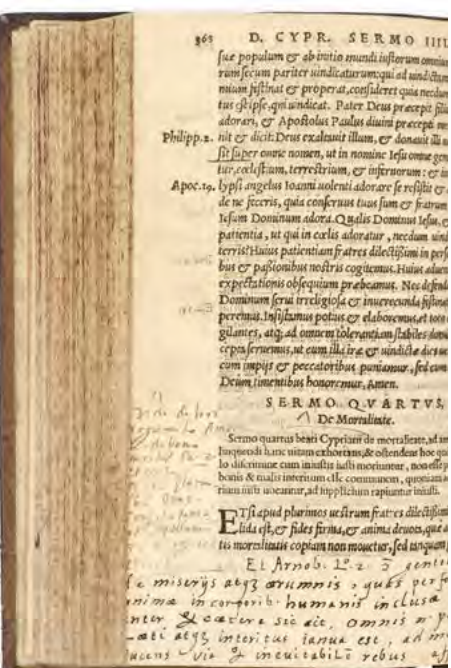 363 D. CYPR. SERMO IIII
suæ populum & ab initio mundi iustorum omnium
rum secum pariter uindicaturum: qui ad uindictam
mium festinat & properat, consideret quia necdum
tus est ipse, qui uindicat. Pater Deus præcepit filiu
adorari, & Apostolus Paulus diuini præcepti me
Philipp.2. nit & dicit: Deus exaltauit illum, & donauit illi n
sit super omne nomen, ut in nomine Iesu omne gen
tur, cœlestium, terrestrium, & infernorum: & in
Apoc.19. lypsi angelus Ioanni uolenti adorare se resistit &
de ne feceris, quia conseruus tuus sum & fratrum
Iesum Dominum adora. Qualis Dominus Iesus, &
patientia, ut qui in cœlis adoratur, necdum uind
terris? Huius patientiam fratres dilectissimi in pers
bus & passionibus nostris cogitemus. Huius aduen
expectationis obsequium præbeamus. Nec defend
Dominum serui irreligiosa & inuerecunda festina
peremus. Insistamus potius & elaboremus, et toto c
gilantes, atq; ad omnem tolerantiam stabiles domi
cepta seruemus, ut cum illa iræ & uindictæ dies ue
cum impijs & peccatoribus puniamur, sed cum
Deum timentibus honoremur, Amen.
SERMO QVARTVS,
De Mortalitate.
Sermo quartus beati Cypriani de mortalitate, ad am
linquendi hanc uitam exhortans, & ostendens hoc qu
lo discrimine cum iniustis iusti moriuntur, non esse p
bonis & malis interitum esse communem, quoniam a
rium iusti uocantur, ad supplicium rapiuntur iniusti.
ETsi apud plurimos uestrum fratres dilectissimi
lida est, & fides firma, & anima deuota, quæ a
tis mortalitatis copiam non mouetur, sed tanquam
Et Arnob. L. 2 genti
miserijs atqz ærumnis
in corporib. humanis inclusa
& cætera sic ait, Omnis
atqz interitus ianua est, ad
via inevitabile rebus